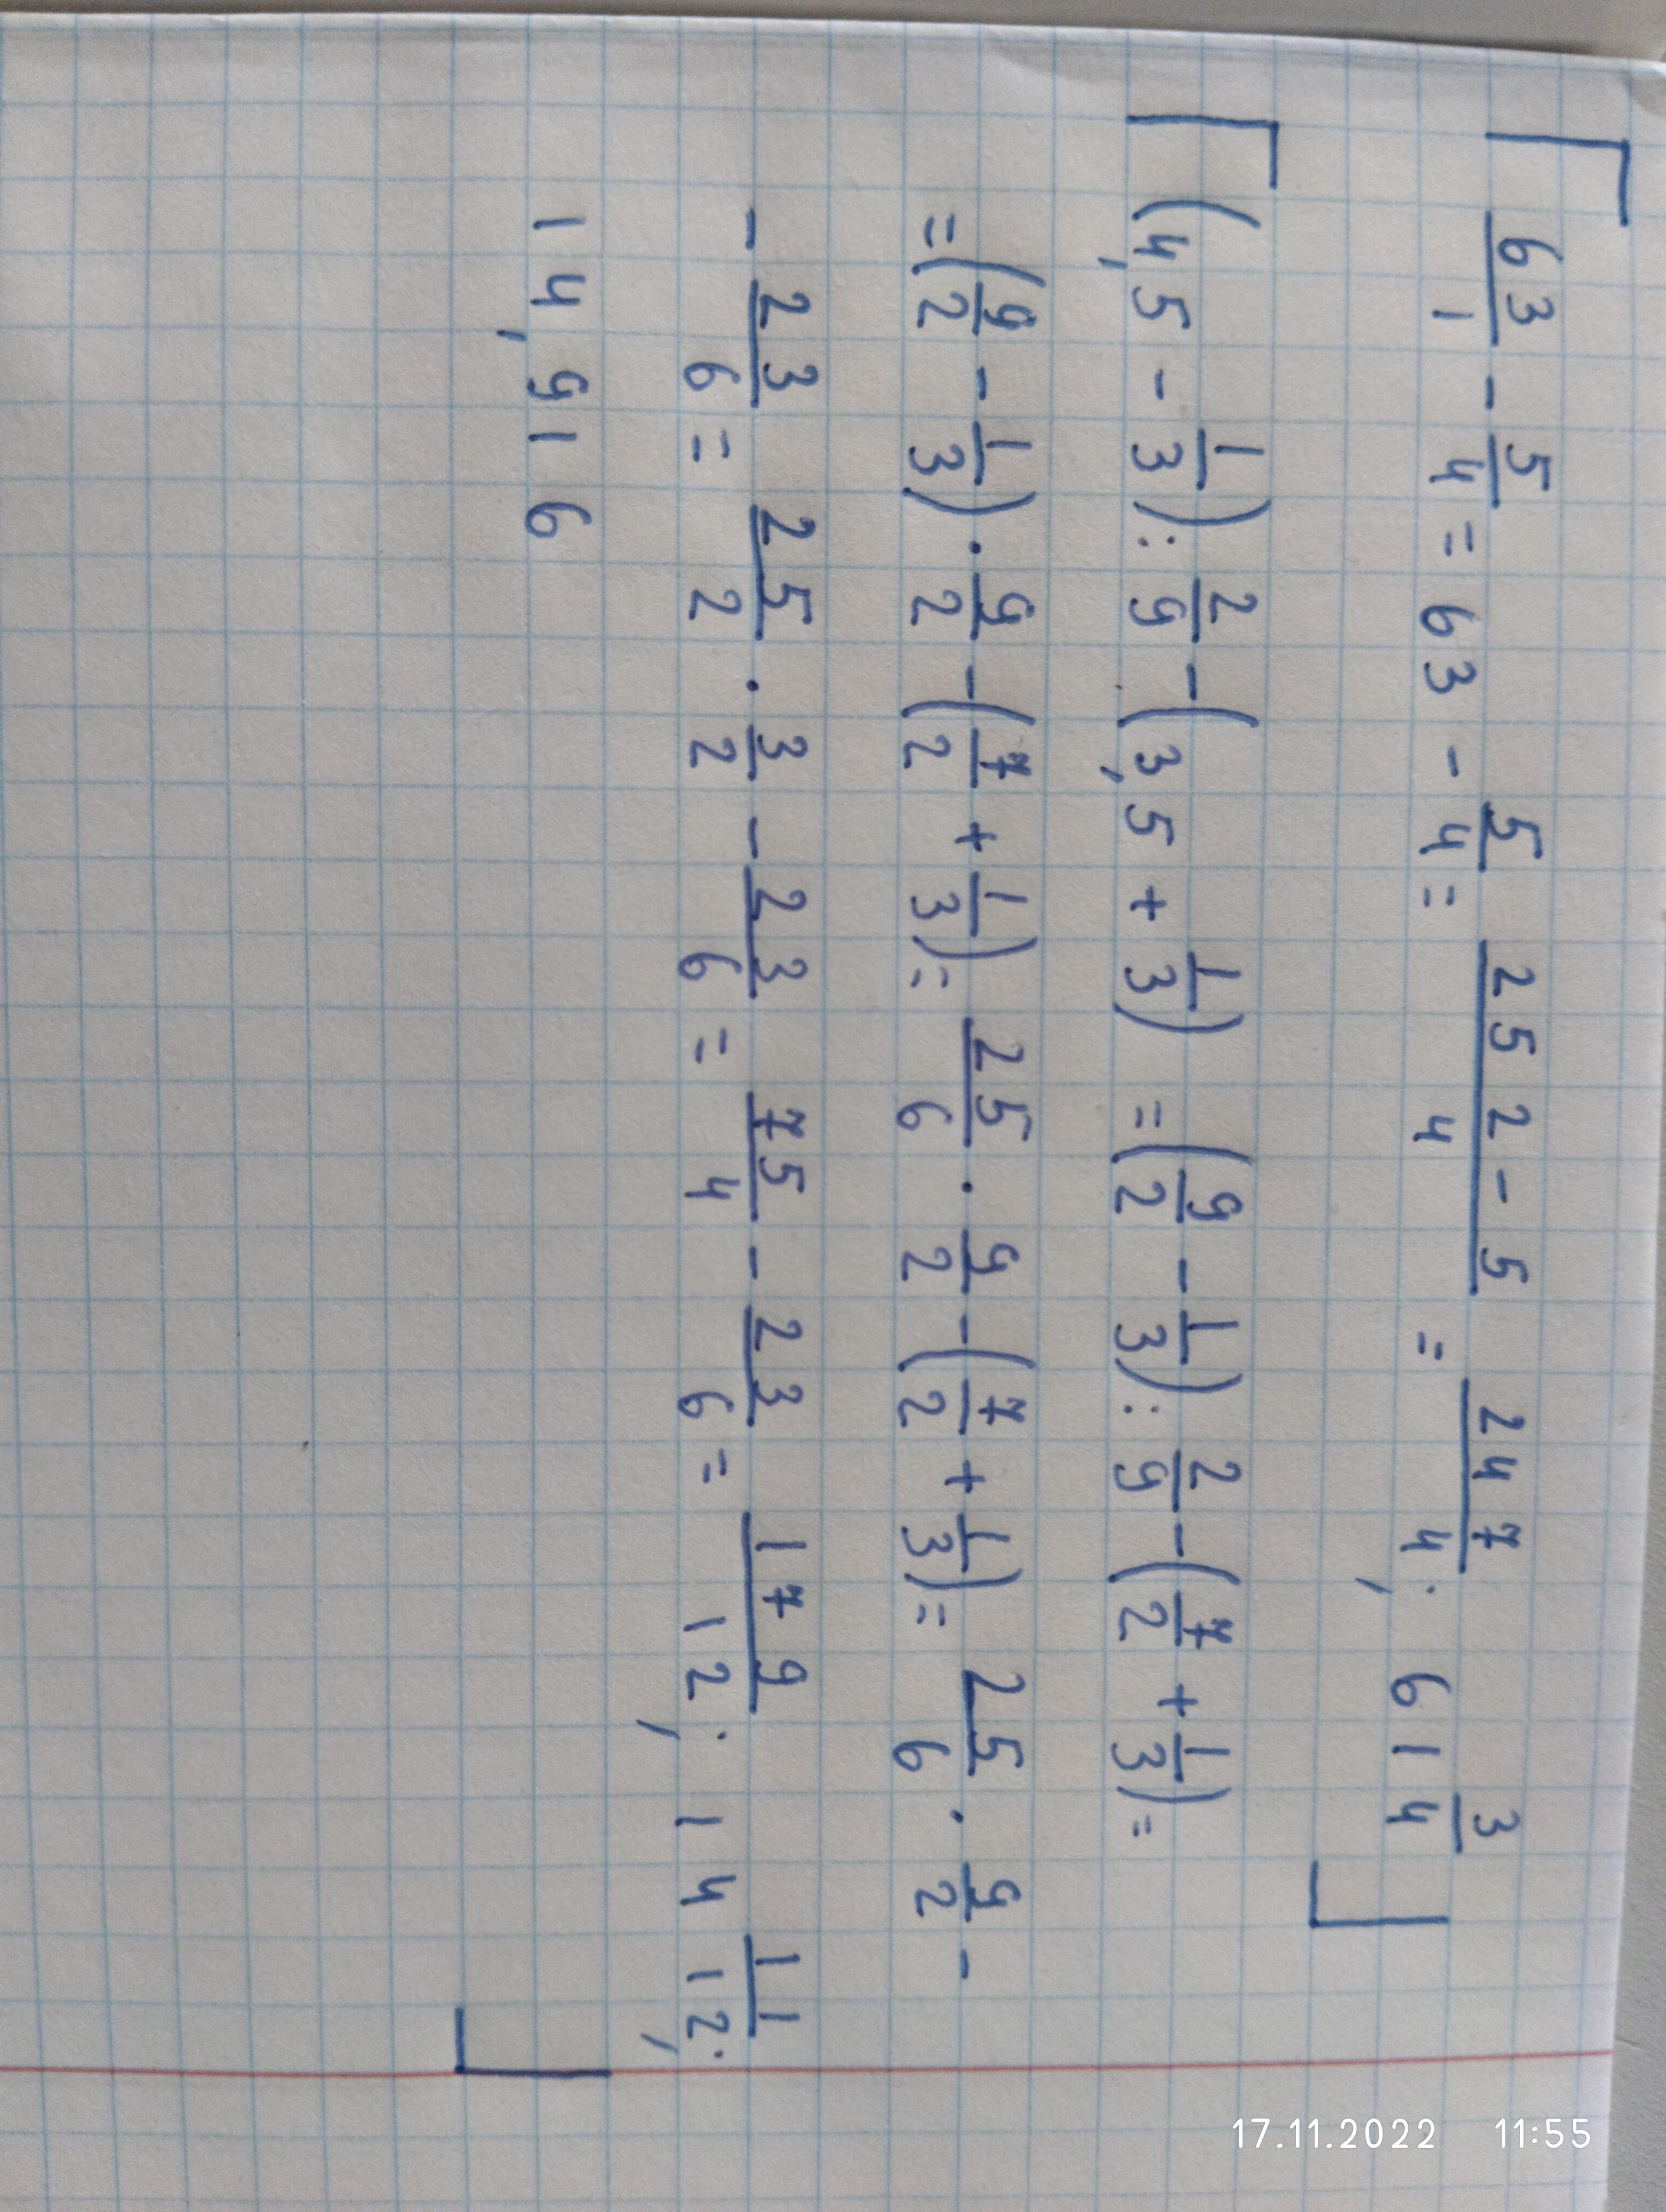 63/1 - 5/4 = 63 - 5/4 = 252-5/4 = 247/4; 61 3/4
(4,5 - 1/3) : 2/9 - (3,5 + 1/3) = (9/2 - 1/3) : 2/9 - (7/2 + 1/3) =
= (9/2 - 1/3) · 9/2 - (7/2 + 1/3) = 25/6 · 9/2 - (7/2 + 1/3) = 25/6 · 9/2 -
- 23/6 = 25/2 · 3/2 - 23/6 = 75/4 - 23/6 = 179/12; 14 11/12;
14,916
17.11.2022 11:55